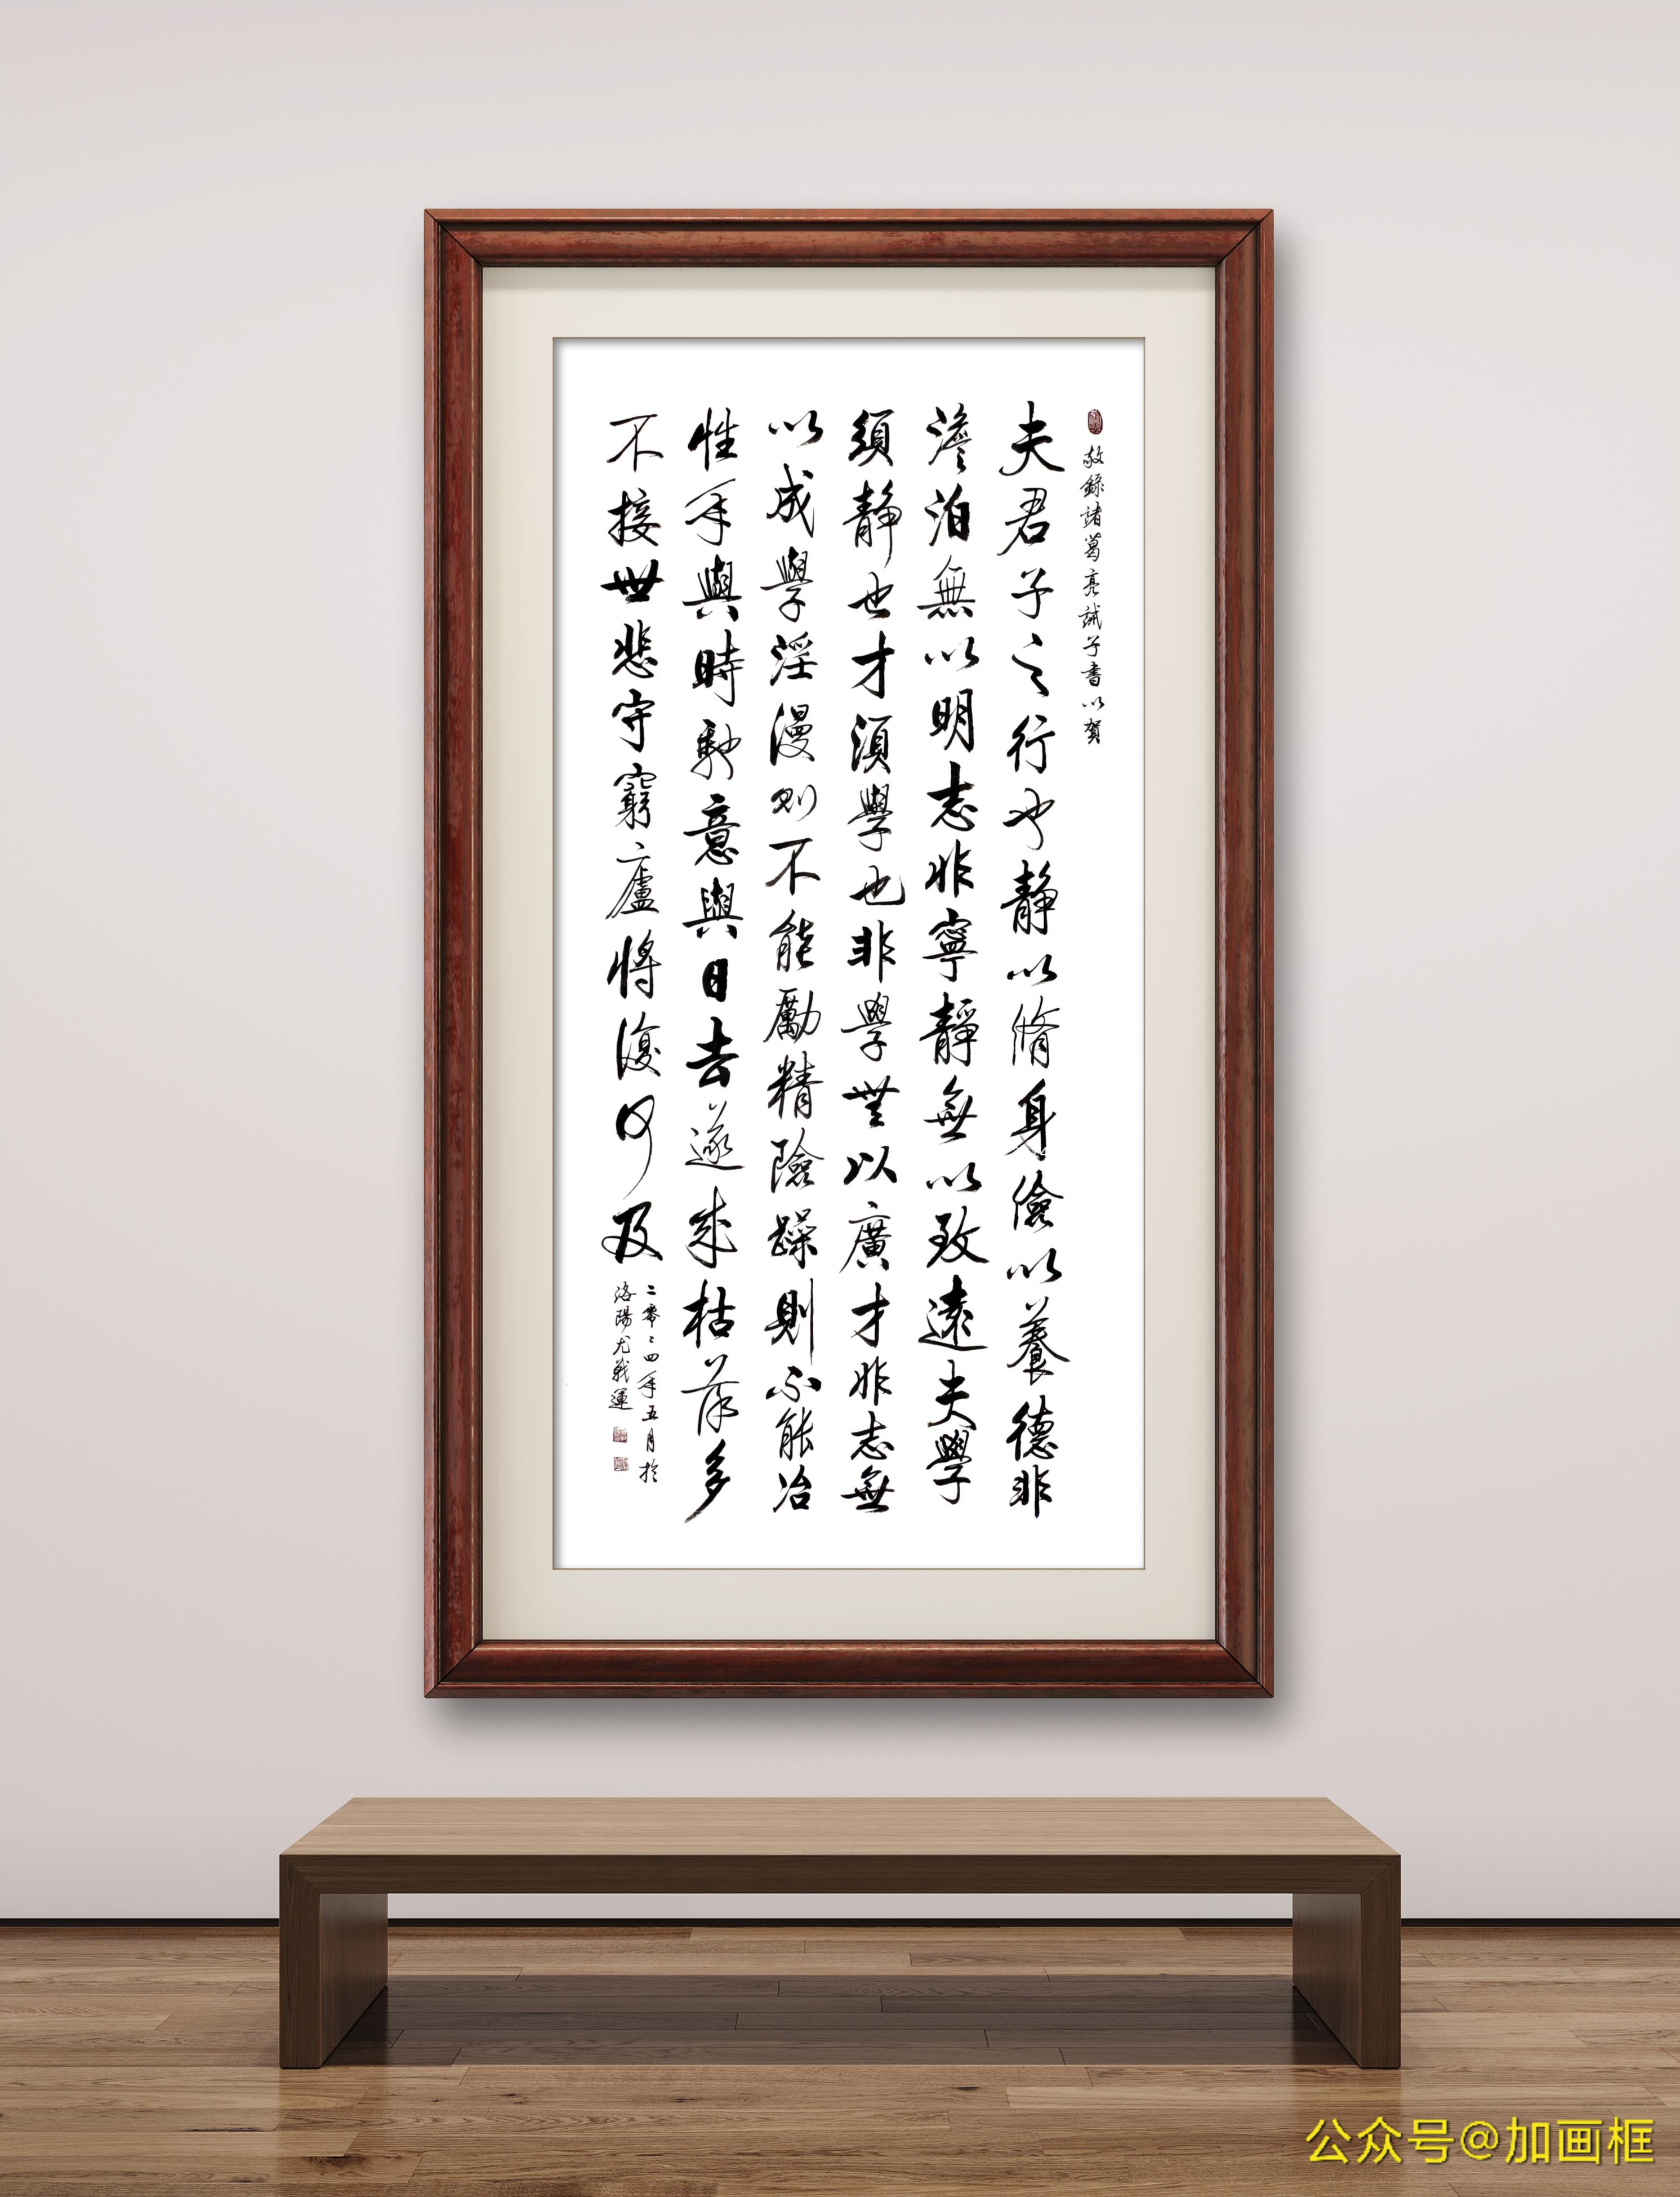 敬錄諸葛亮誡子書以賀
夫君子之行也静以脩身儉以養德非
澹泊無以明志非寧靜無以致遠夫學
須静也才須學也非學無以廣才非志無
以成學淫漫則不能勵精險躁則不能冶
性年與時馳意與日去遂成枯落多
不接世悲守窮廬將復何及
二零二四年五月於
洛陽尤戰運
公众号@加画框